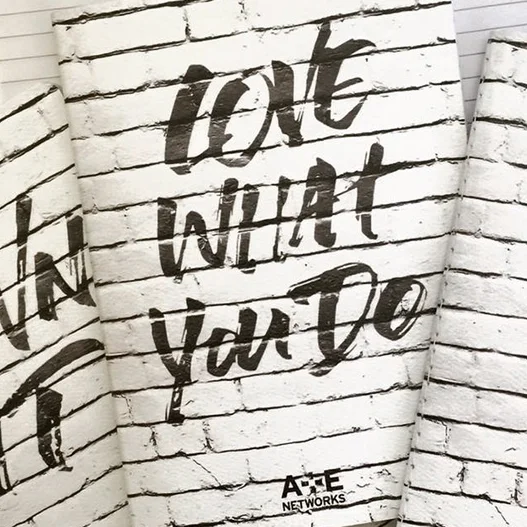 LOVE
WHAT
You Do
A+E
NETWORKS
WN
IT